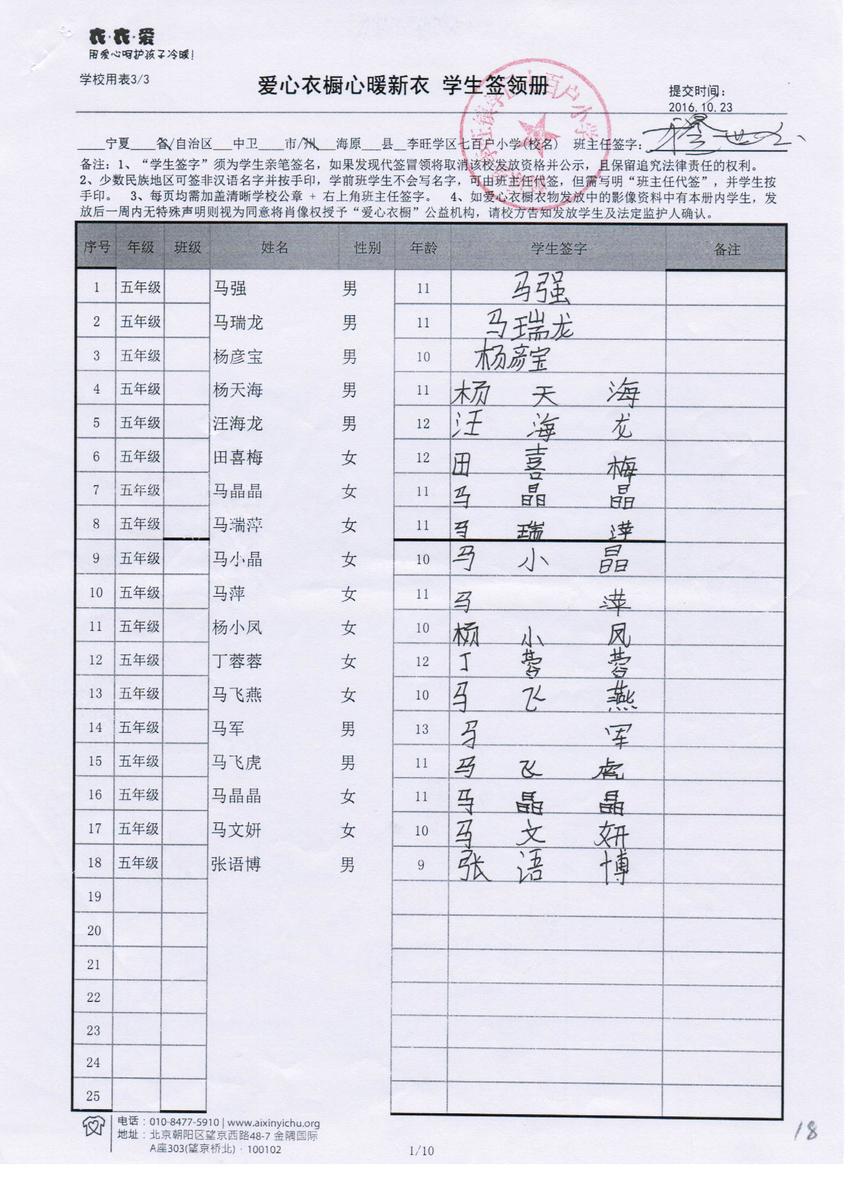 衣·衣·爱
用爱心呵护孩子冷暖！
学校用表3/3
爱心衣橱心暖新衣 学生签领册
提交时间：
2016.10.23
宁夏 省/自治区 中卫 市/州 海原 县 李旺学区七百户小学(校名) 班主任签字：
备注：1、“学生签字”须为学生亲笔签名，如果发现代签冒领将取消该校发放资格并公示，且保留追究法律责任的权利。
2、少数民族地区可签非汉语名字并按手印，学前班学生不会写名字，可由班主任代签，但需写明“班主任代签”，并学生按
手印。 3、每页均需加盖清晰学校公章 + 右上角班主任签字。 4、如爱心衣橱衣物发放中的影像资料中有本册内学生，发
放后一周内无特殊声明则视为同意将肖像权授予“爱心衣橱”公益机构，请校方告知发放学生及法定监护人确认。
序号 年级 班级 姓名 性别 年龄 学生签字 备注
1 五年级 马强 男 11 马强
2 五年级 马瑞龙 男 11 马瑞龙
3 五年级 杨彦宝 男 10 杨彦宝
4 五年级 杨天海 男 11 杨天海
5 五年级 汪海龙 男 12 汪海龙
6 五年级 田喜梅 女 12 田喜梅
7 五年级 马晶晶 女 11 马晶晶
8 五年级 马瑞萍 女 11 马瑞萍
9 五年级 马小晶 女 10 马小晶
10 五年级 马萍 女 11 马萍
11 五年级 杨小凤 女 10 杨小凤
12 五年级 丁蓉蓉 女 12 丁蓉蓉
13 五年级 马飞燕 女 10 马飞燕
14 五年级 马军 男 13 马军
15 五年级 马飞虎 男 11 马飞虎
16 五年级 马晶晶 女 11 马晶晶
17 五年级 马文妍 女 10 马文妍
18 五年级 张语博 男 9 张语博
19
20
21
22
23
24
25
电话：010-8477-5910 | www.aixinyichu.org
地址：北京朝阳区望京西路48-7 金隅国际
A座303(望京桥北)·100102
1/10
18